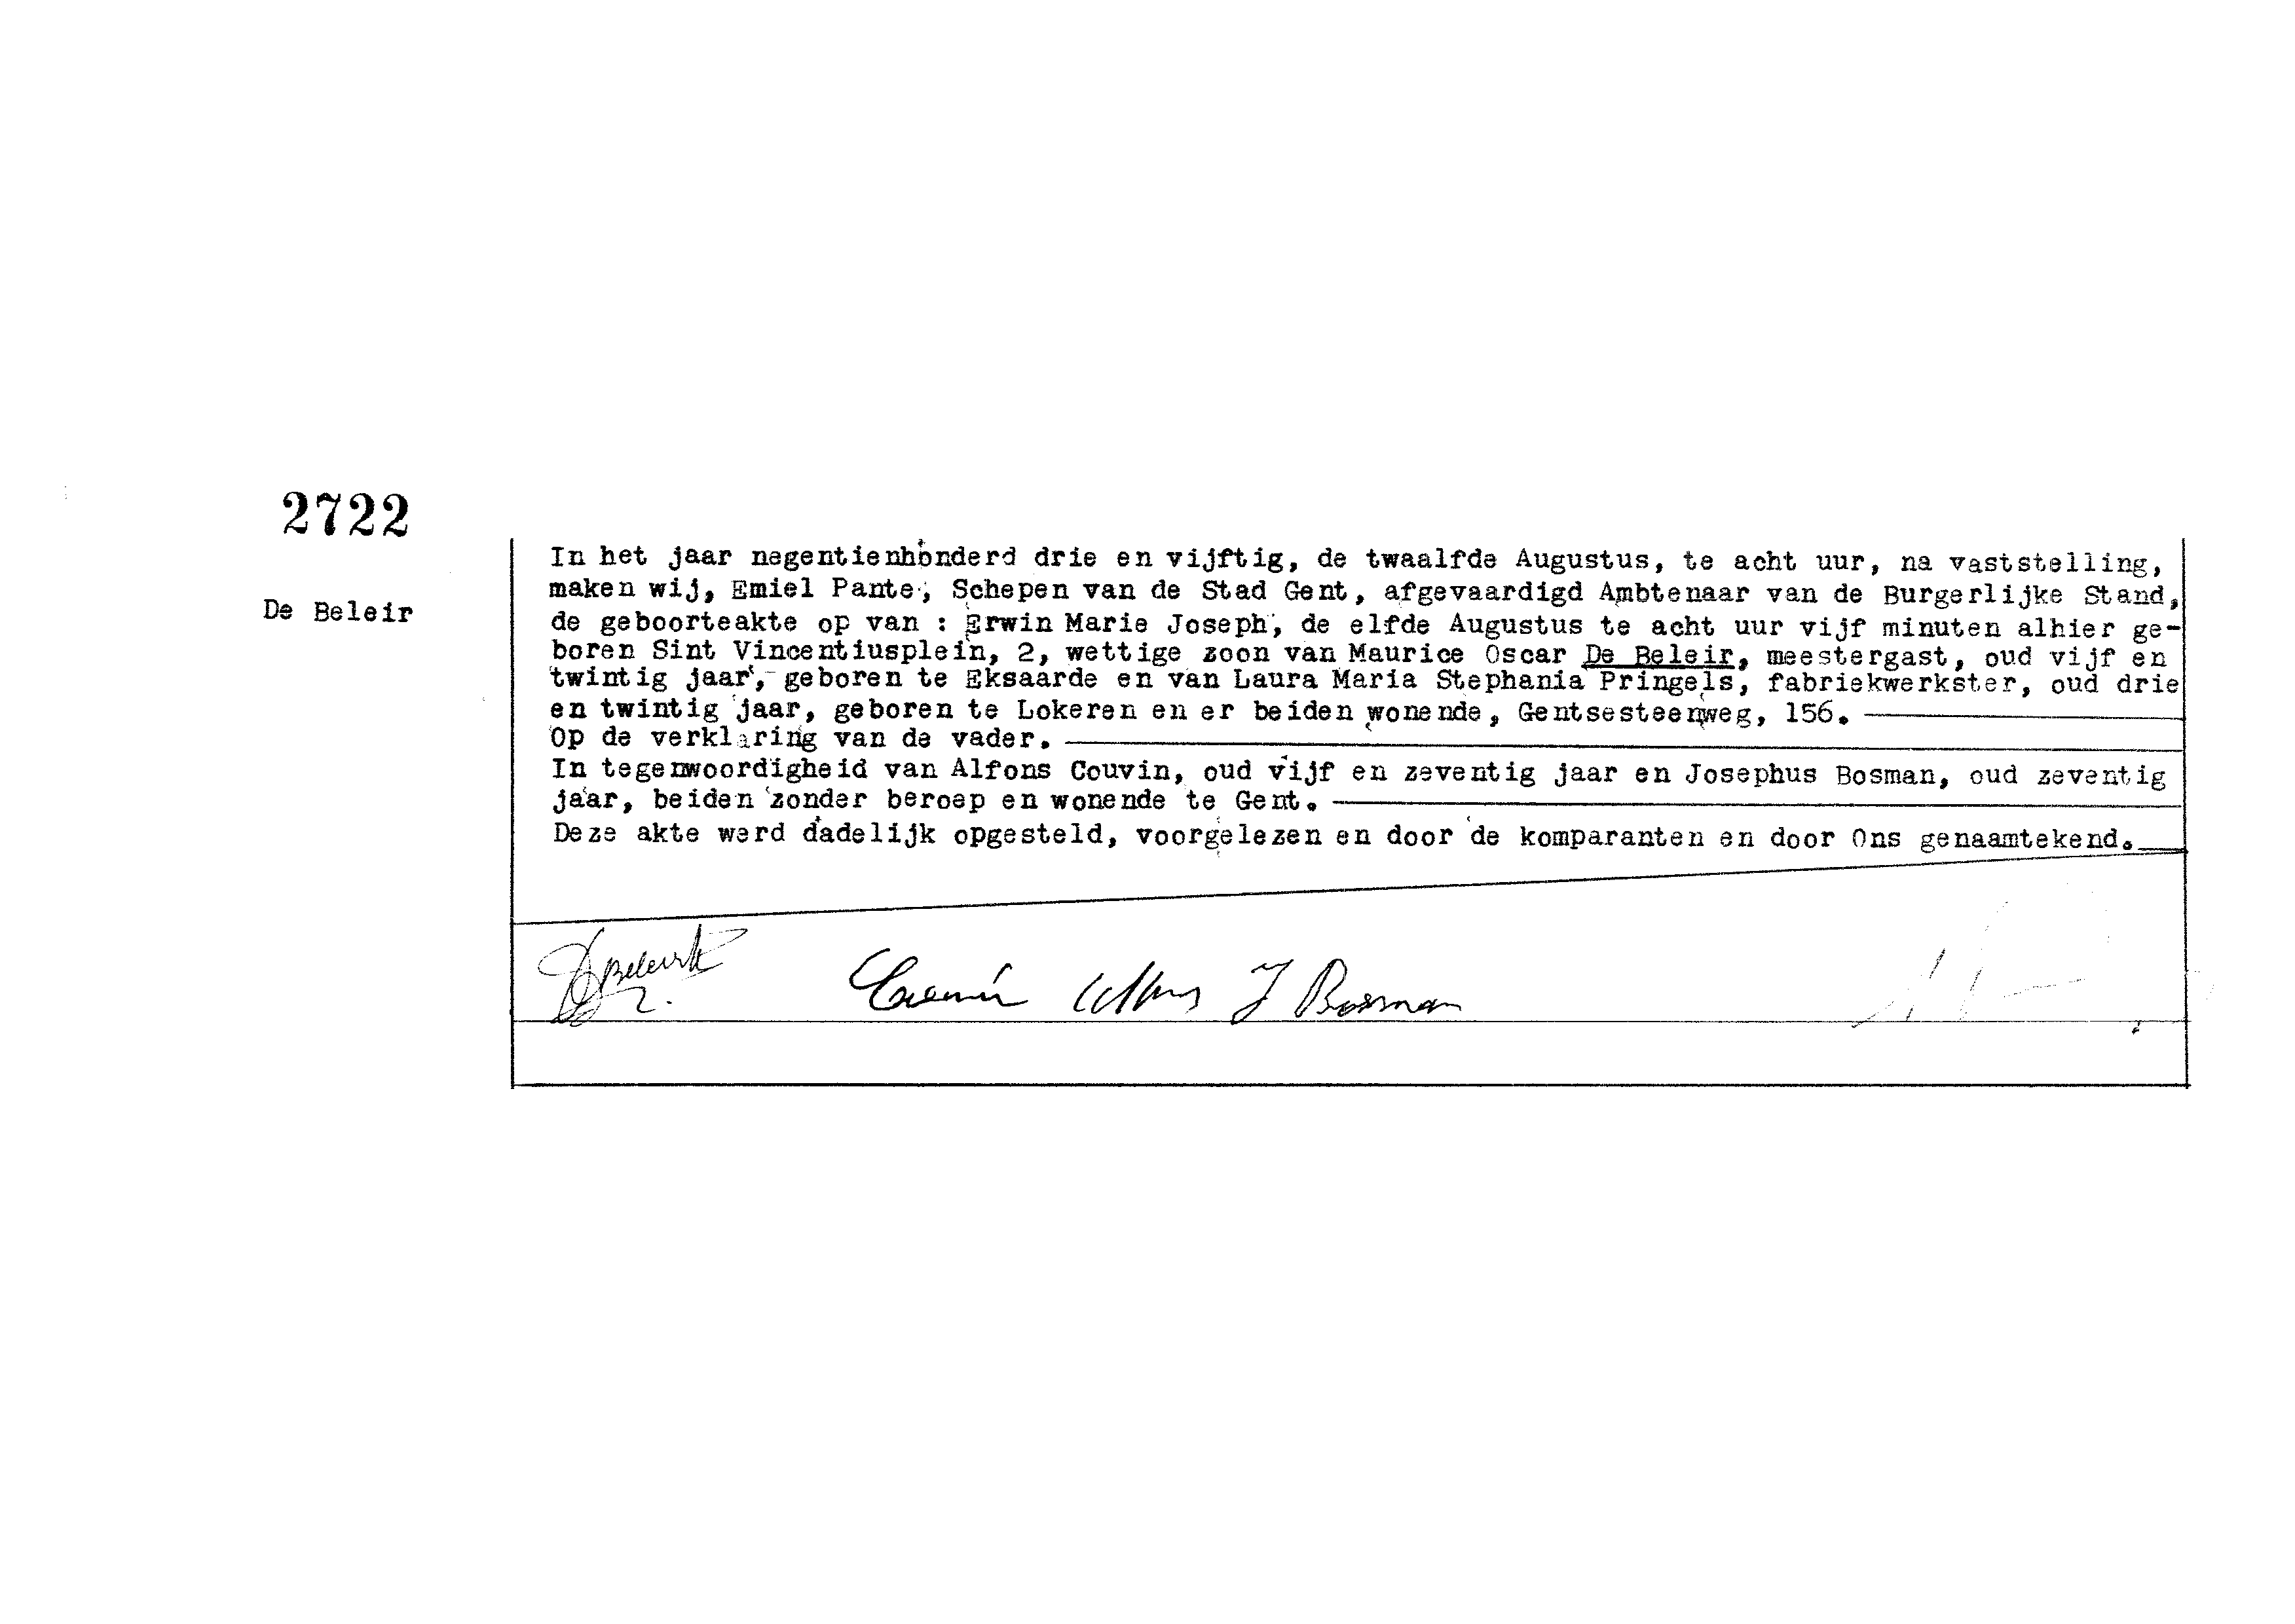 2722
De Beleir
In het jaar negentienhonderd drie en vijftig, de twaalfde Augustus, te acht uur, na vaststelling,
maken wij, Emiel Pante, Schepen van de Stad Gent, afgevaardigd Ambtenaar van de Burgerlijke Stand,
de geboorteakte op van : Erwin Marie Joseph, de elfde Augustus te acht uur vijf minuten alhier ge-
boren Sint Vincentiusplein, 2, wettige zoon van Maurice Oscar De Beleir, meestergast, oud vijf en
twintig jaar, geboren te Eksaarde en van Laura Maria Stephania Pringels, fabriekwerkster, oud drie
en twintig jaar, geboren te Lokeren en er beiden wonende, Gentsesteenweg, 156.
Op de verklaring van de vader.
In tegenwoordigheid van Alfons Couvin, oud vijf en zeventig jaar en Josephus Bosman, oud zeventig
jaar, beiden zonder beroep en wonende te Gent.
Deze akte werd dadelijk opgesteld, voorgelezen en door de komparanten en door Ons genaamtekend.
J Bosman